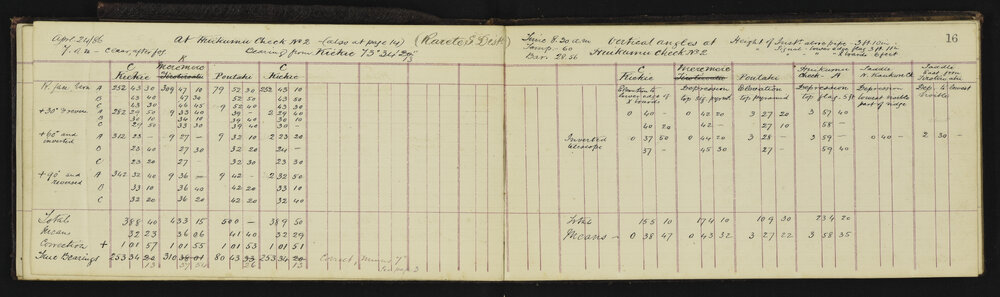 April 24/86 At Heukumu Check No 2 - (also at page 14) (Rarete S. Dist)
7 a.m - Clear, after fog Bearing from Kickie 73° 34'
Time 8.20 a.m Vertical angles at Height of Inst. above pipe - 3 ft 10 in
Temp - 60 Heukumu Check No 2
Bar. 28.56
16
C Kickie
Maremire
Poutaki
C Kickie
A 252 43 30 309 47 10 79 52 30 252 43 10
B 43 40 47 30 52 50 43 50
C 43 30 46 45 52 40 43 30
+30° & reverse A 282 29 50 9 33 40 9 39 - 2 29 40
B 30 10 34 10 39 40 30 10
C 29 50 33 30 39 40 30 -
+60° and inverted A 312 23 - 9 27 - 9 32 10 2 23 20
B 23 40 27 30 32 20 24 -
C 23 20 27 - 32 30 23 30
+90° and reversed A 342 32 40 9 36 - 9 42 - 2 32 50
B 33 10 36 40 42 20 33 10
C 32 20 36 20 42 20 32 40
Total 388 40 433 15 500 - 389 50
Means 32 23 36 06 41 40 32 29
Correction + 1 01 57 1 01 55 1 01 53 1 01 51
True Bearings 253 34 20 310 38 01 80 43 33 253 34 20
13 57 54 26 13
Correct, Minus 7"
See page 3
C Kickie
Maremire
Poutaki
Heukumu Check - A
Saddle N. Kaukum Ck
Saddle East from
Elevation to lower edge of 8 boards
Depression top sig. pyramid
Elevation top pyramid
Depression top flag. 5 ft
Depression lowest visible part of ridge
Dep. to lowest visible
0 40 - 0 42 20 3 27 20 3 57 40
40 20 42 - 27 10 58 -
Inverted telescope 0 37 50 0 44 20 3 28 - 3 59 - 0 40 - 2 30 -
37 - 45 30 27 - 59 40
Total 155 10 174 10 109 30 234 20
Means - 0 38 47 0 43 32 3 27 22 3 58 35